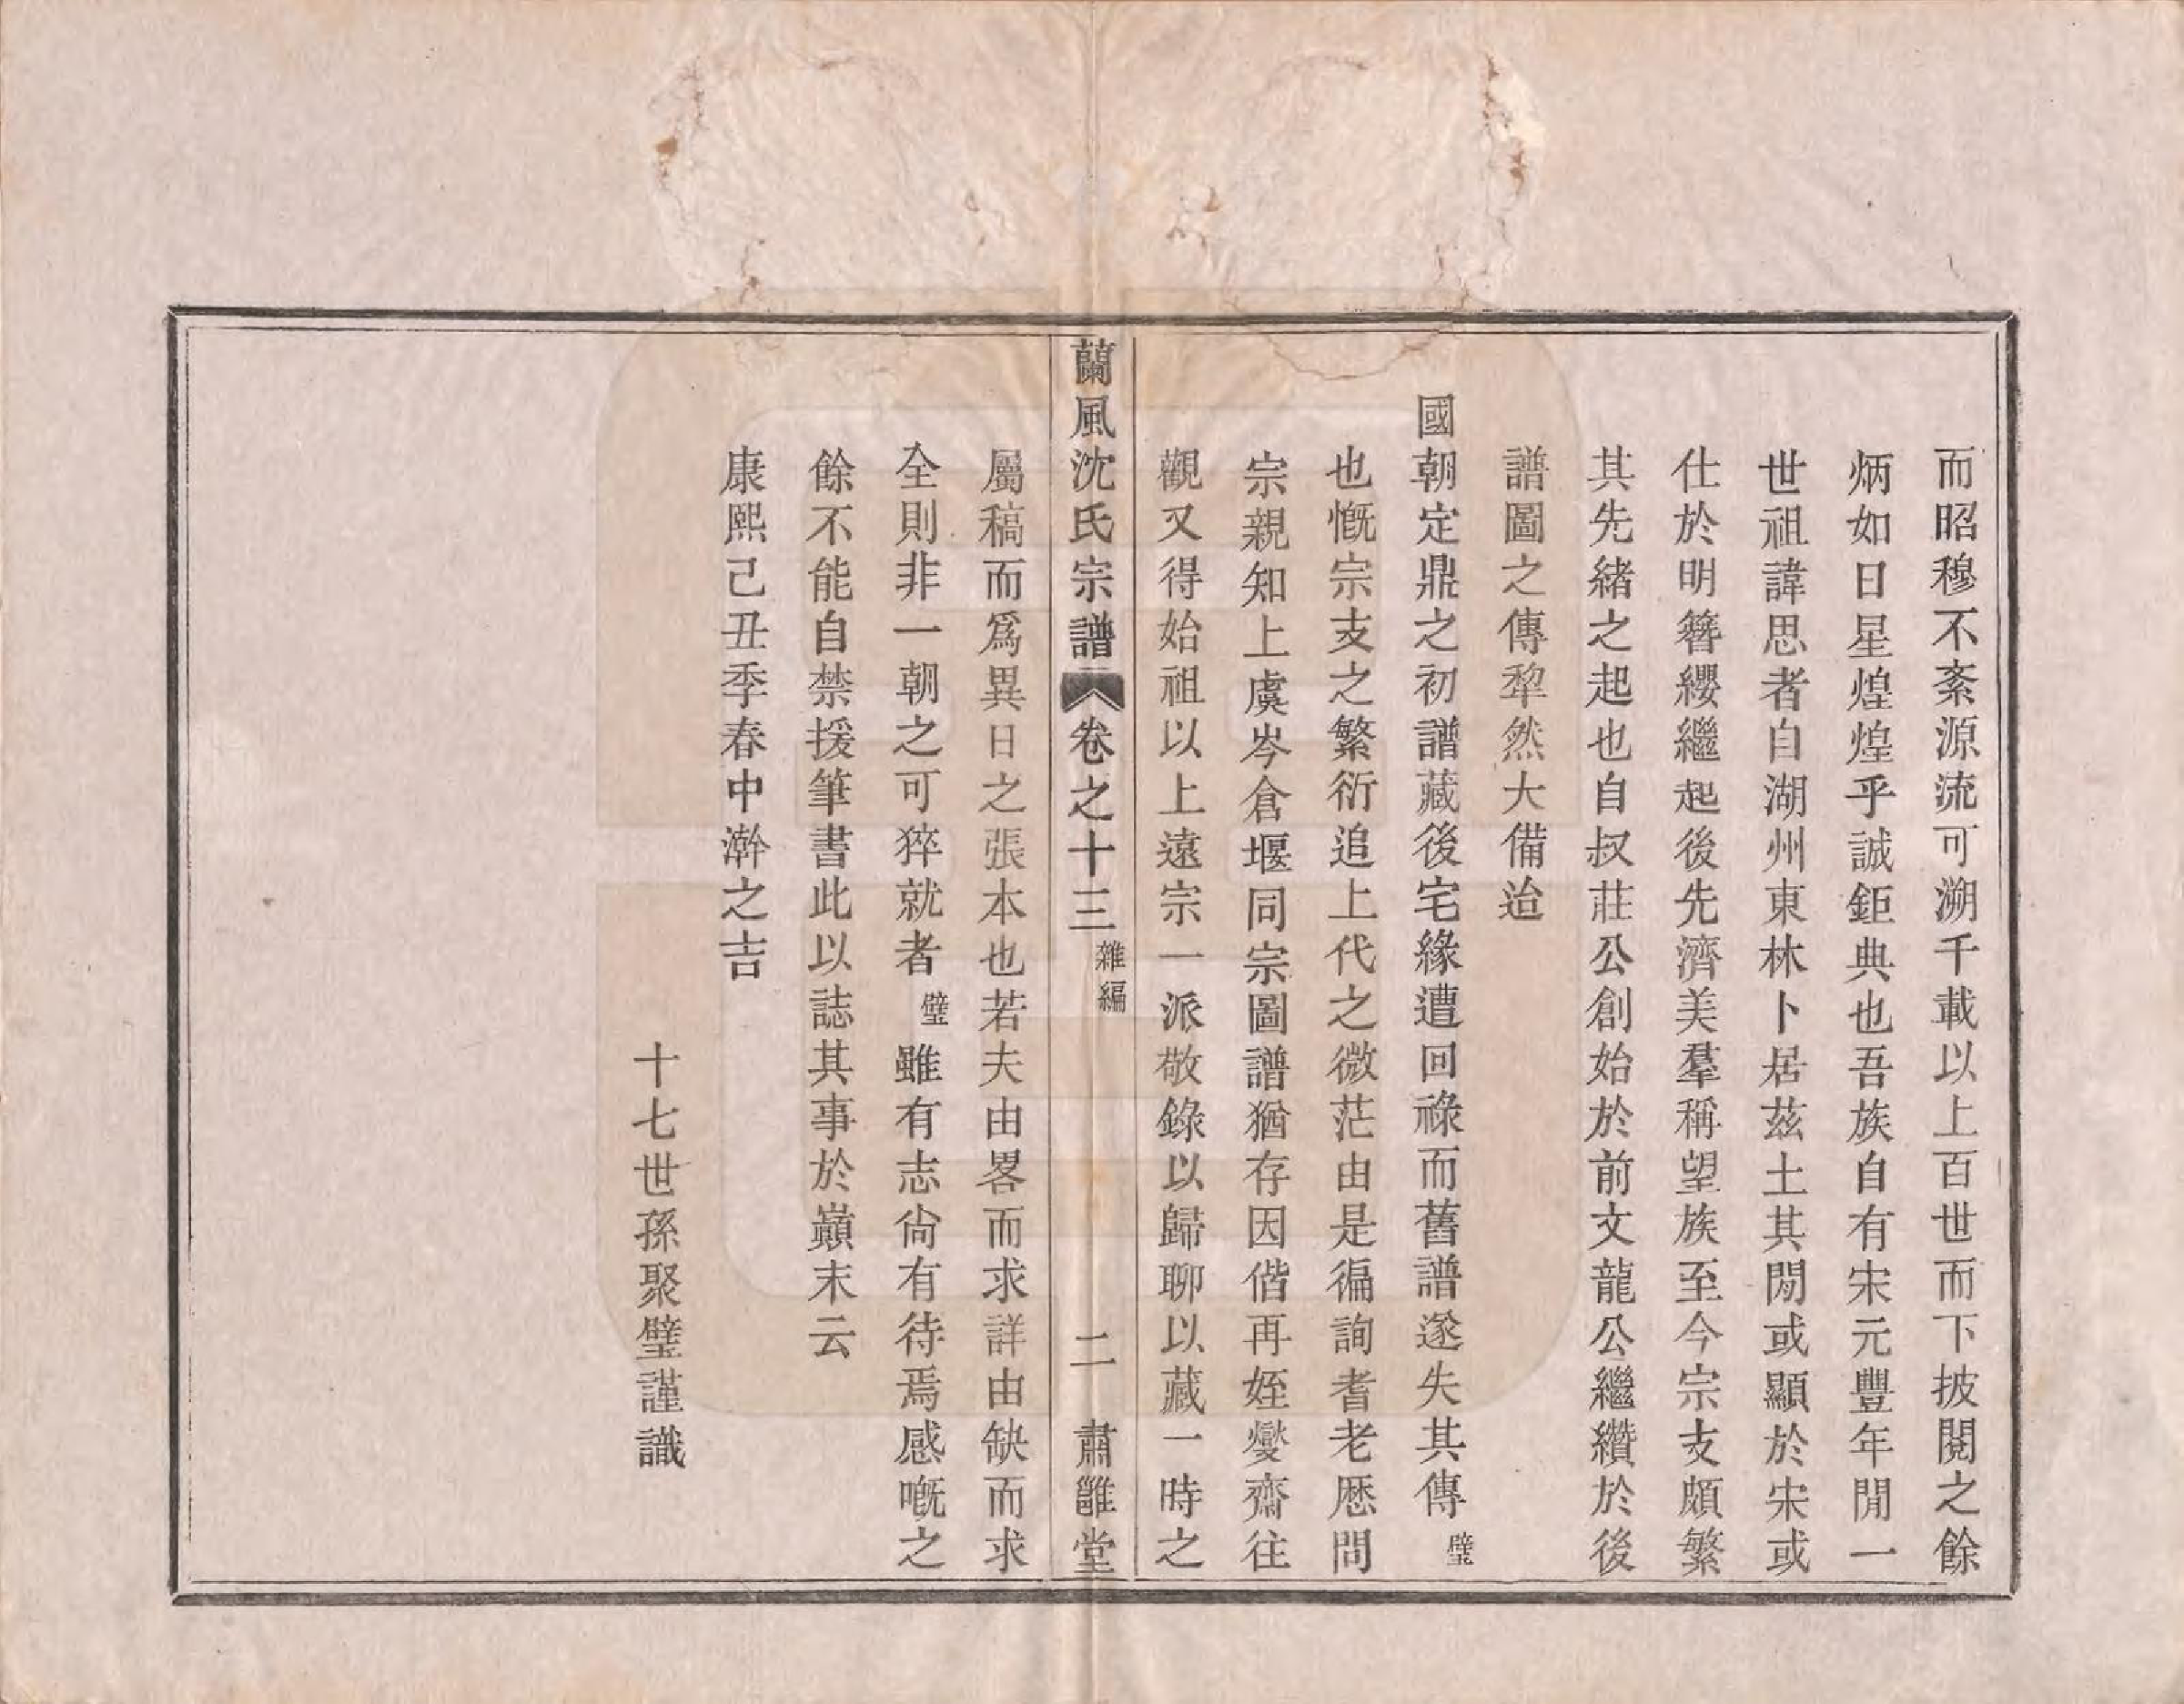 而昭穆不紊源流可溯千載以上百世而下披閱之餘
炳如日星煌煌乎誠鉅典也吾族自有宋元豐年閒一
世祖諱思者自湖州東林卜居茲土其閒或顯於宋或
仕於明簪纓繼起後先濟美羣稱望族至今宗支頗繁
其先緒之起也自叔莊公創始於前文龍公繼纘於後
譜圖之傳犂然大備迨
國朝定鼎之初譜藏後宅緣遭回祿而舊譜遂失其傳璧
也慨宗支之繁衍追上代之微茫由是徧詢耆老歷問
宗親知上虞岑倉堰同宗圖譜猶存因偕再姪爕齋往
觀又得始祖以上遠宗一派敬錄以歸聊以藏一時之
蘭風沈氏宗譜 卷之十三 雜編 二 肅雝堂
屬稿而爲異日之張本也若夫由畧而求詳由缺而求
全則非一朝之可猝就者璧雖有志尙有待焉感嘅之
餘不能自禁援筆書此以誌其事於巔末云
康熙己丑季春中澣之吉
十七世孫聚璧謹識